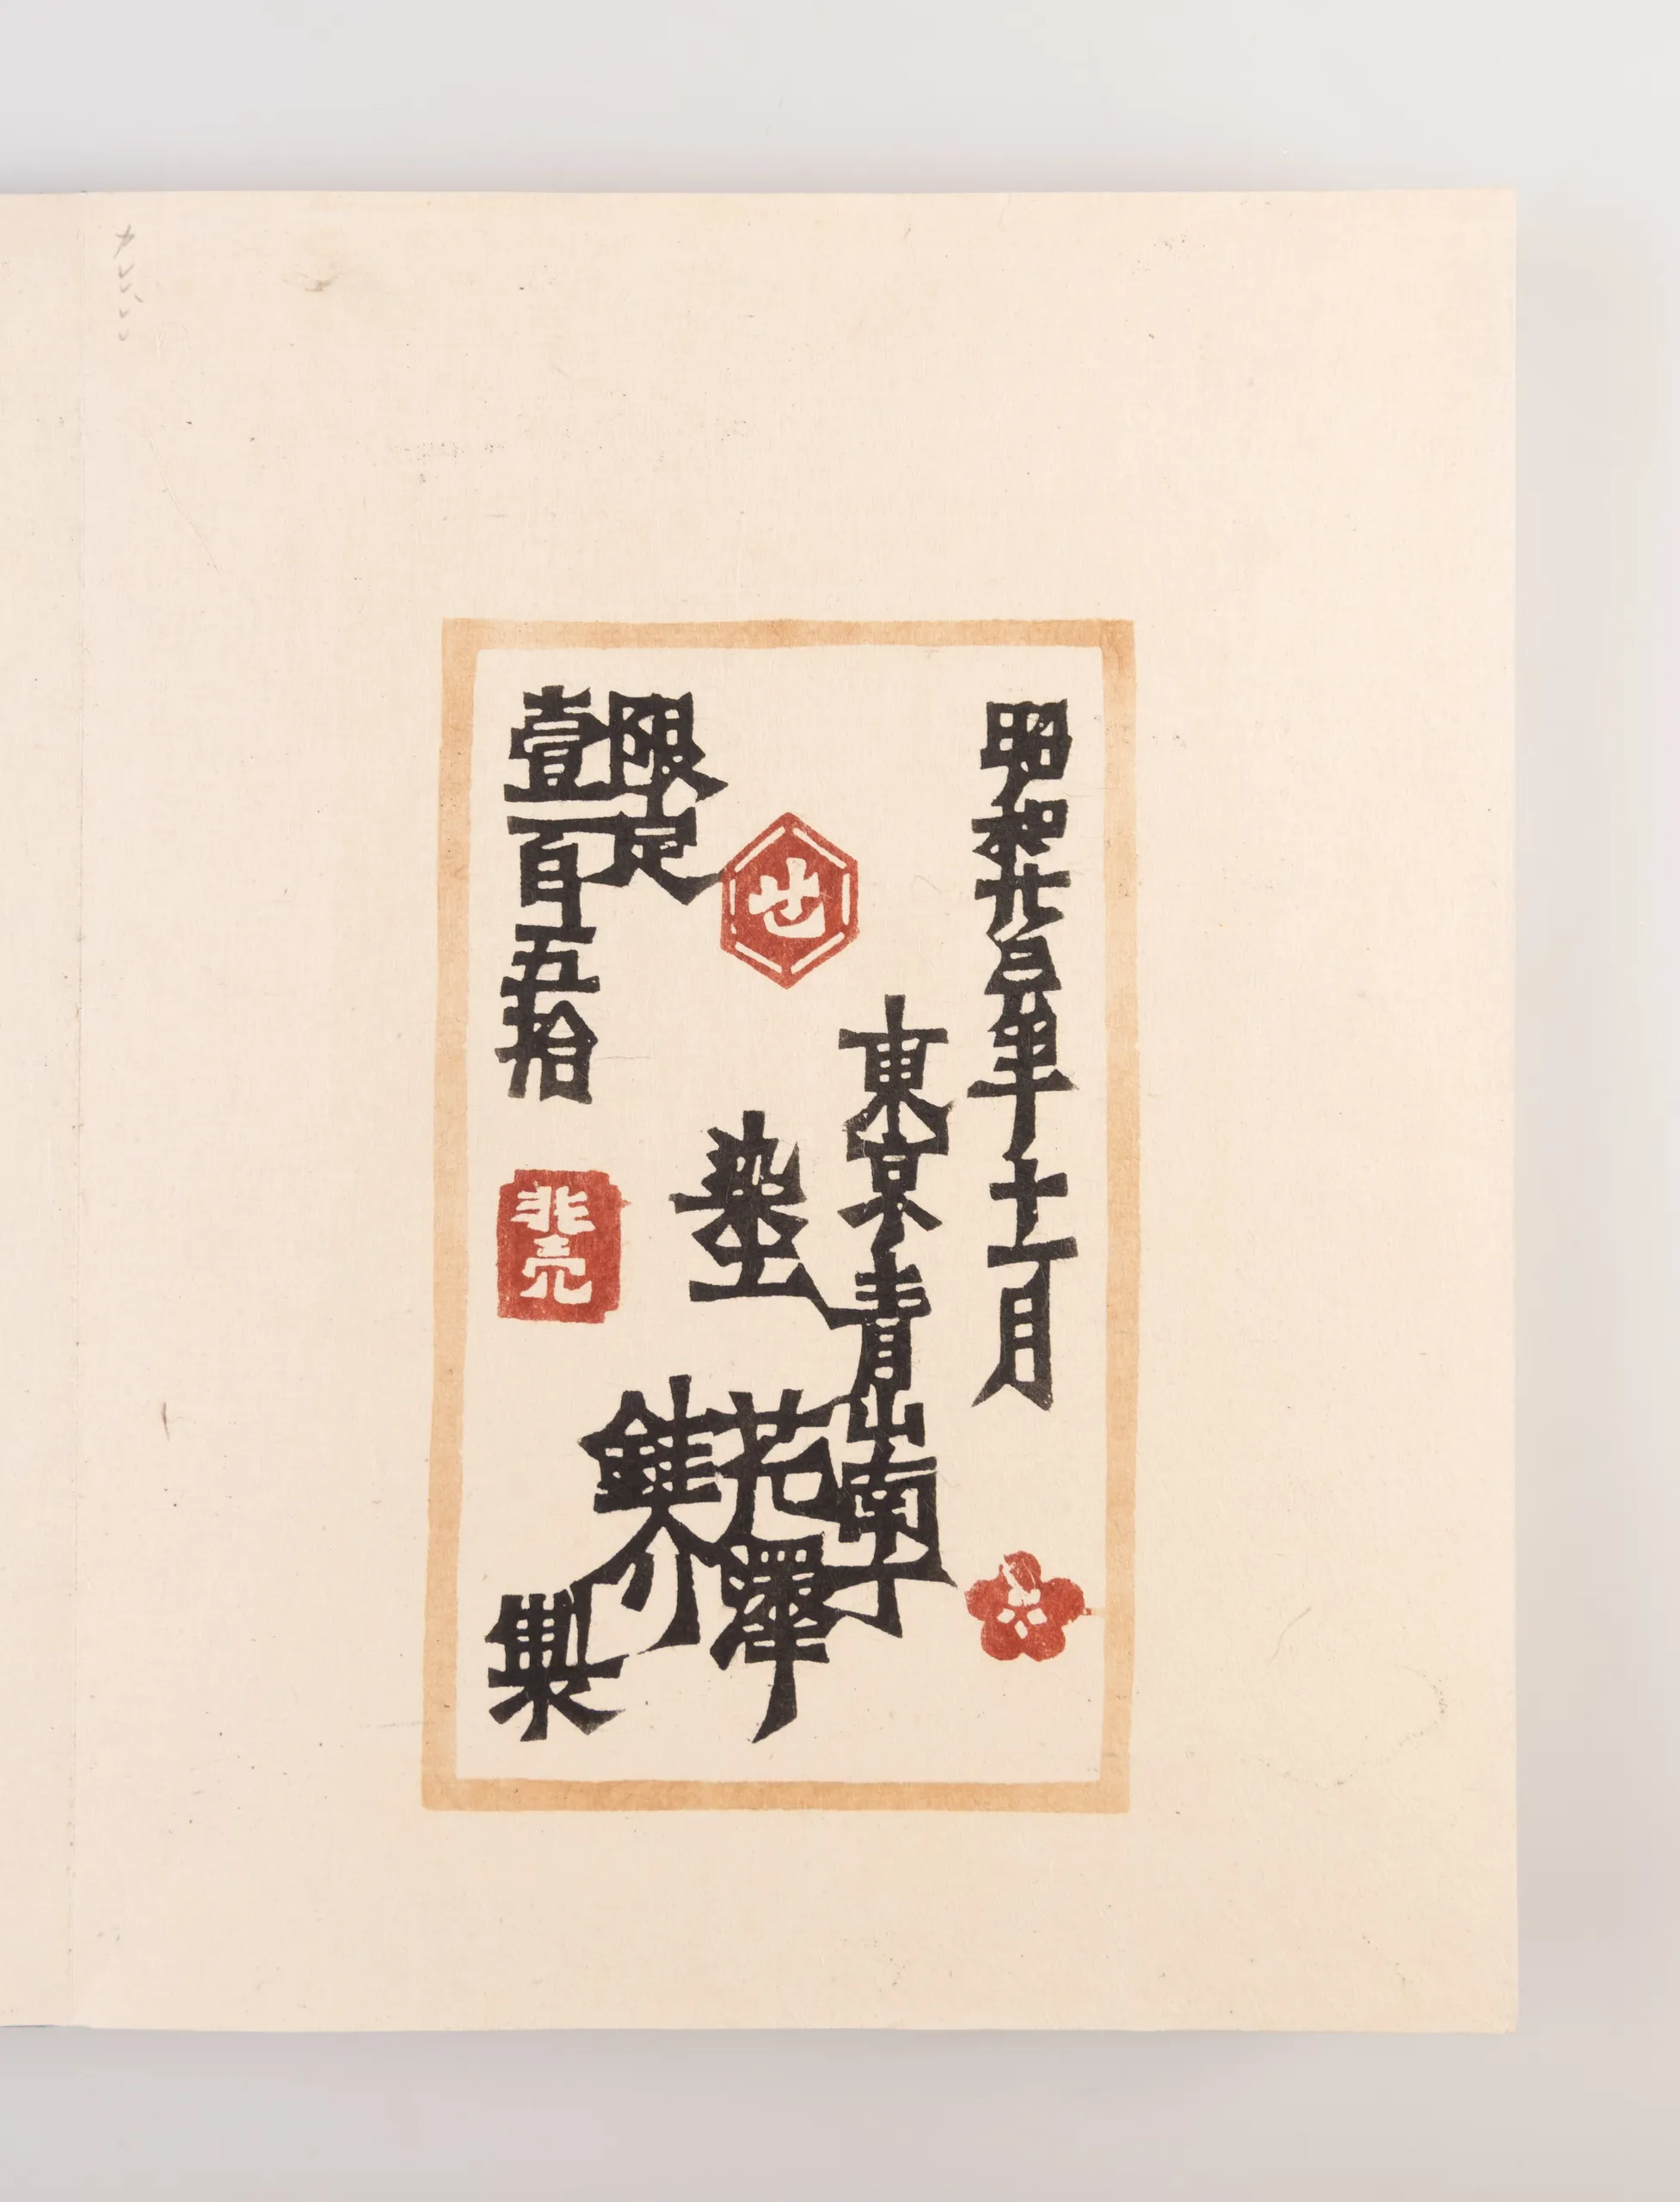 昭和廿三年十一月
東京青山南丁
染工
芹澤
銈介
製
限定
壹百五拾
非売